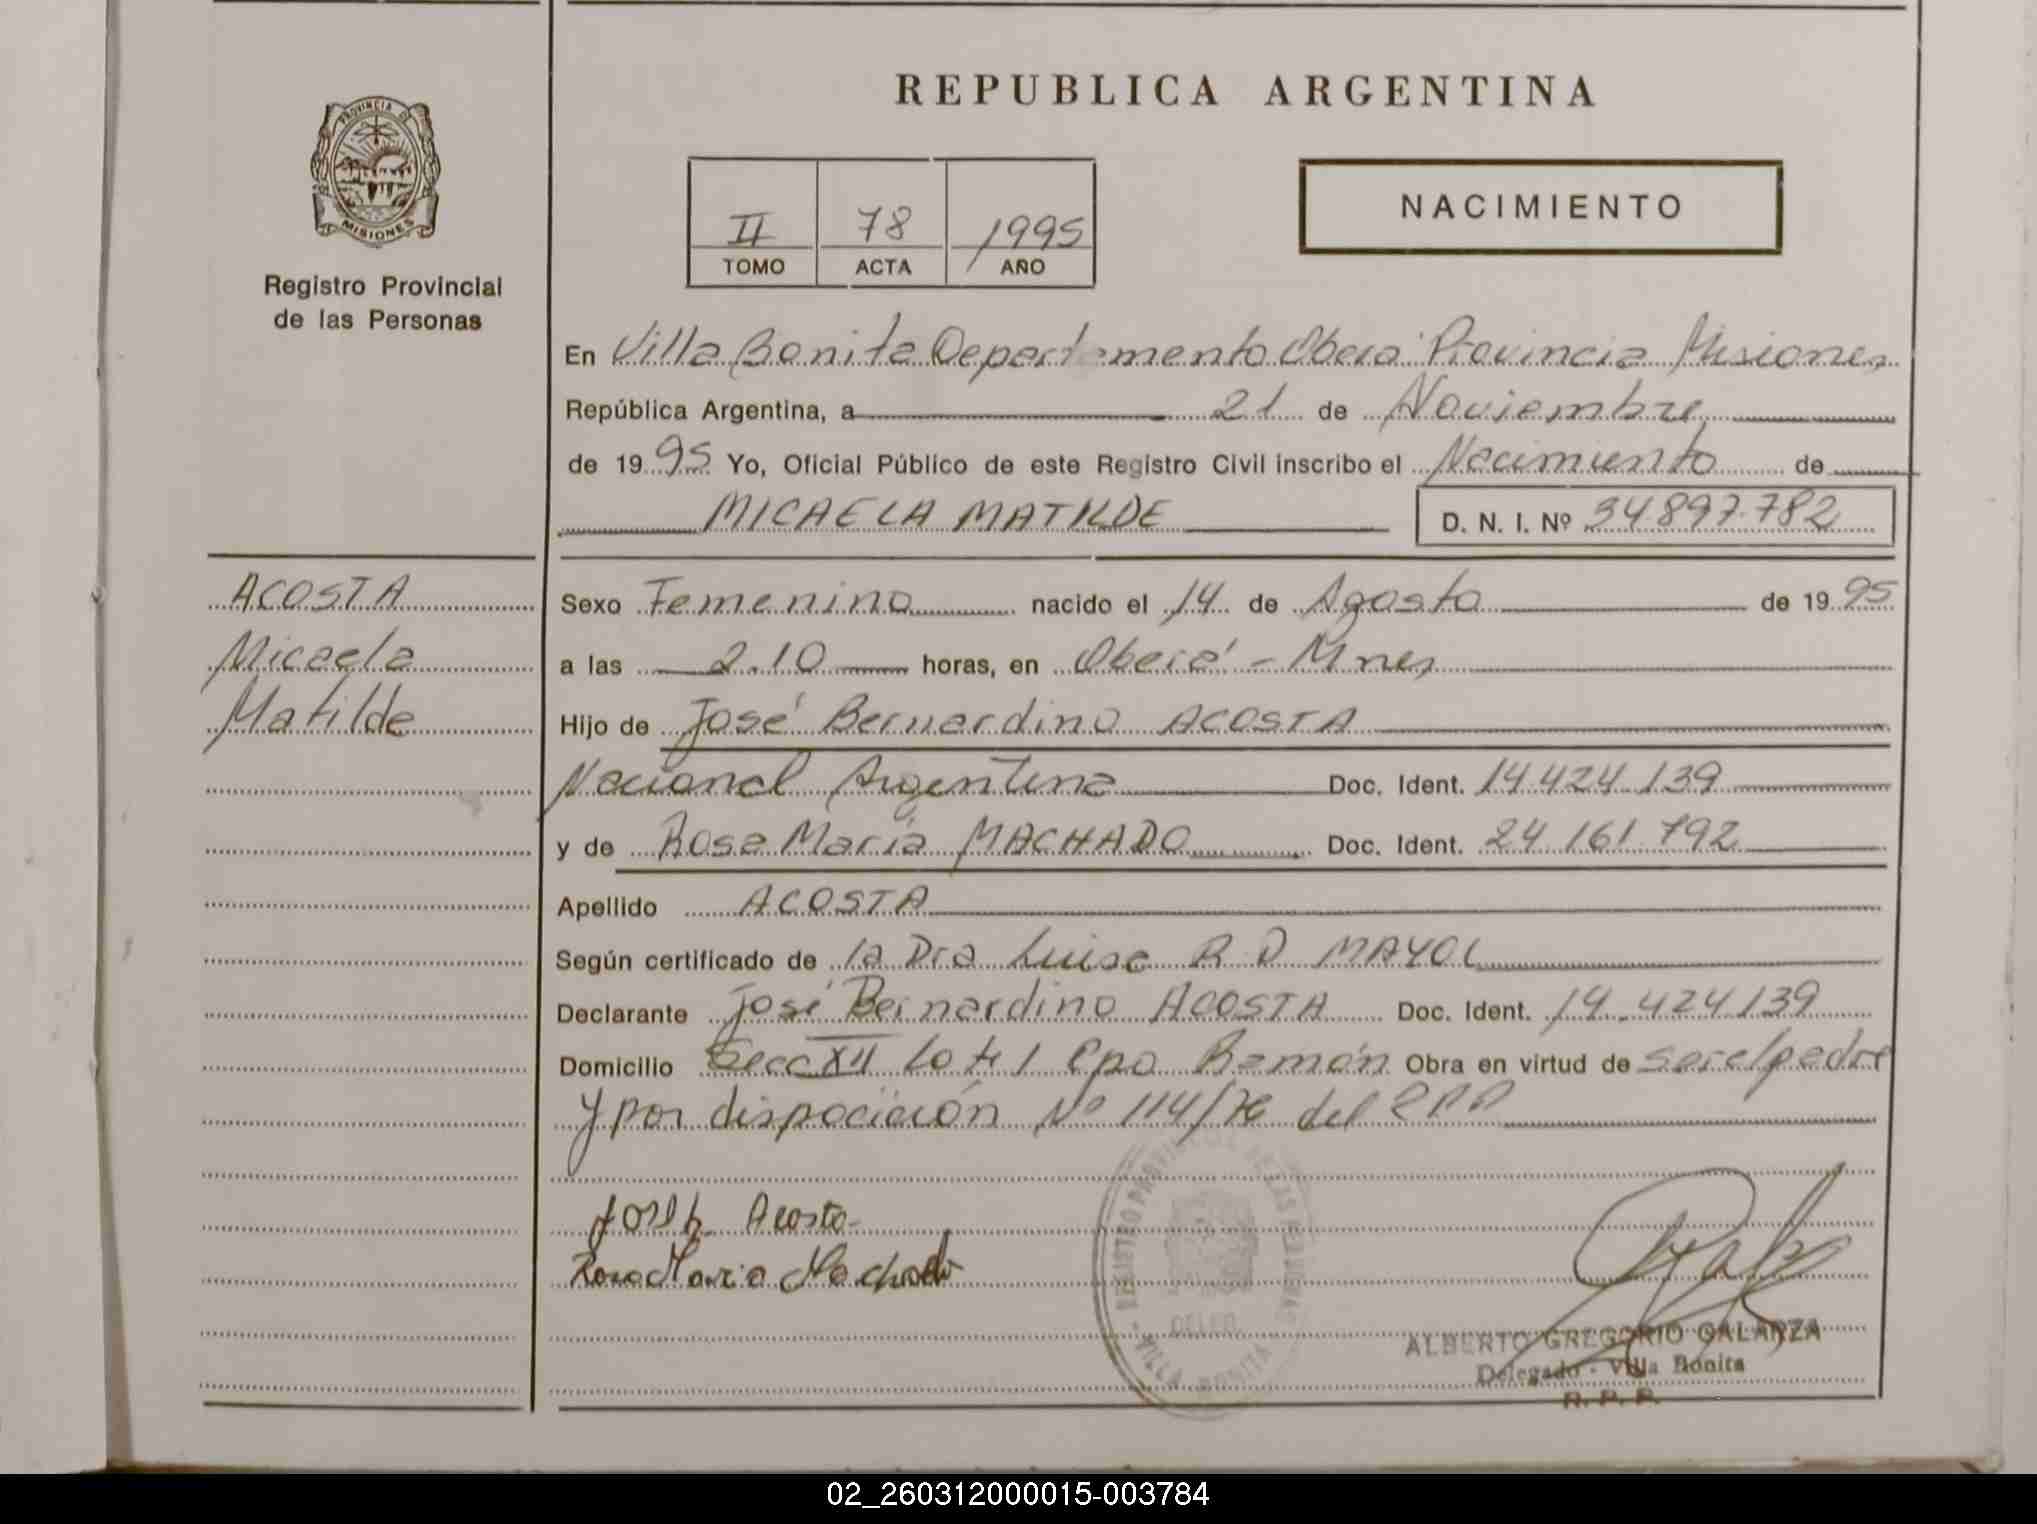 REPUBLICA ARGENTINA
PROVINCIA DE
MISIONES
Registro Provincial
de las Personas
II 78 1995
TOMO ACTA AÑO
NACIMIENTO
En Villa Bonita Departamento Oberá Provincia Misiones
República Argentina, a 21 de Noviembre
de 1995 Yo, Oficial Público de este Registro Civil inscribo el Nacimiento de
MICAELA MATILDE D. N. I. Nº 34.897.782
ACOSTA
Micaela
Matilde
Sexo Femenino nacido el 14 de Agosto de 1995
a las 2.10 horas, en Oberá - Mnes
Hijo de José Bernardino ACOSTA
Nacional Argentina Doc. Ident. 14.424.139
y de Rosa María MACHADO Doc. Ident. 24.161.792
Apellido ACOSTA
Según certificado de la Dra Luisa R D MAYOL
Declarante José Bernardino ACOSTA Doc. Ident. 14.424139
Domicilio Secc XII Lote 1 Cpo Ramón Obra en virtud de ser el padre
y por disposición Nº 114/76 del RPP
José Acosta
Rosa Maria Machado
REGISTRO PROVINCIAL DE LAS PERSONAS
DELEG.
- VILLA BONITA
ALBERTO GREGORIO GALARZA
Delegado - Villa Bonita
R. P. P.
02_260312000015-003784